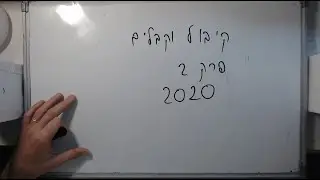 קיבול וקבלים
פרק 2
2020